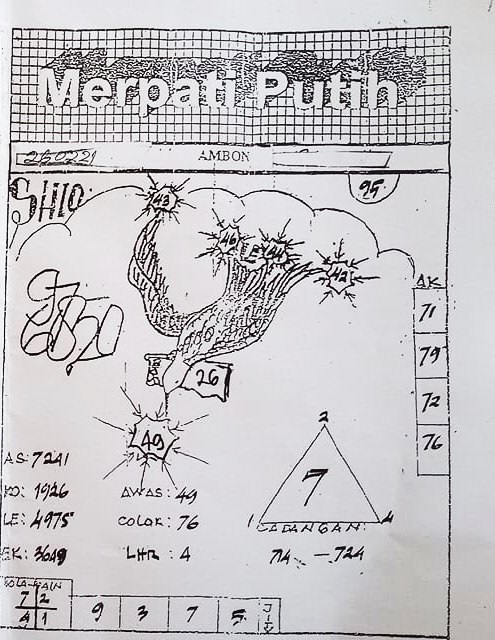 Merpati Putih
AMBON
95
SHIO:
43
46
44
42
AK
71
79
72
76
26
49
AS: 7241
KO: 1926
LE: 4975
EK: 3649
AWAS: 49
COLOK: 76
LHR: 4
2
7
1
4
CADANGAN:
714 - 724
7 2
4 1
9 3 7 5
JITU